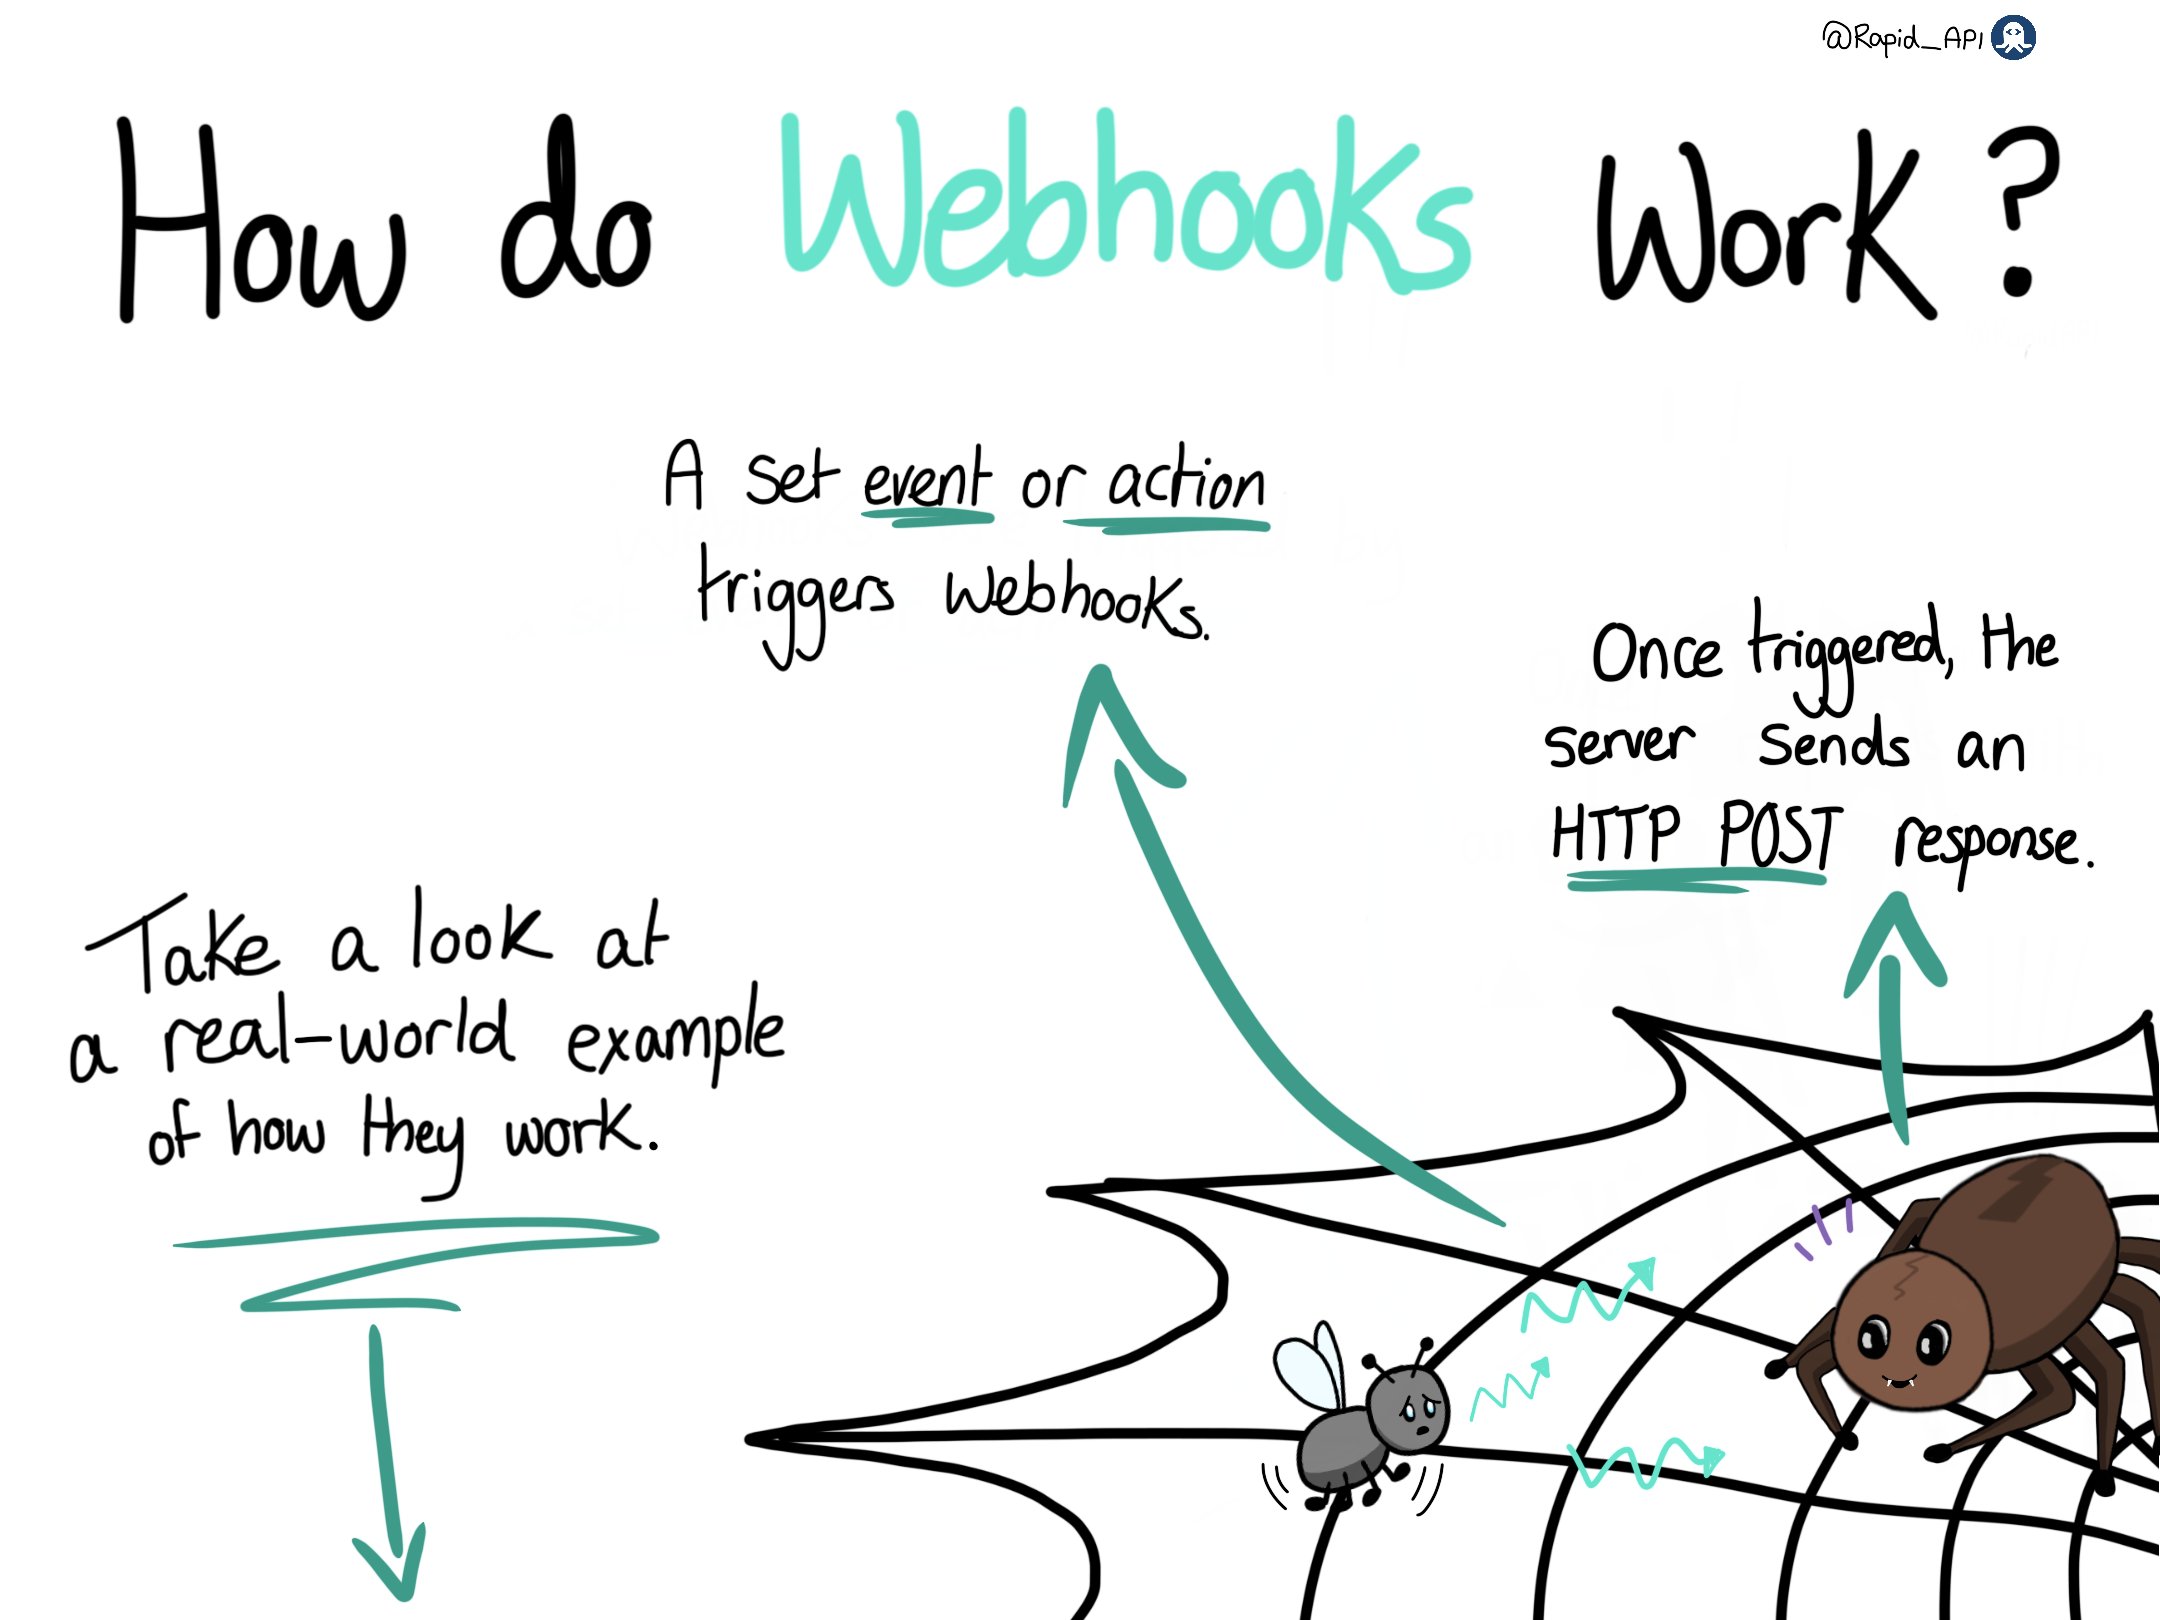 @Rapid_API
How do Webhooks Work?
A set event or action
triggers Webhooks.
Once triggered, the
server sends an
HTTP POST response.
Take a look at
a real-world example
of how they work.